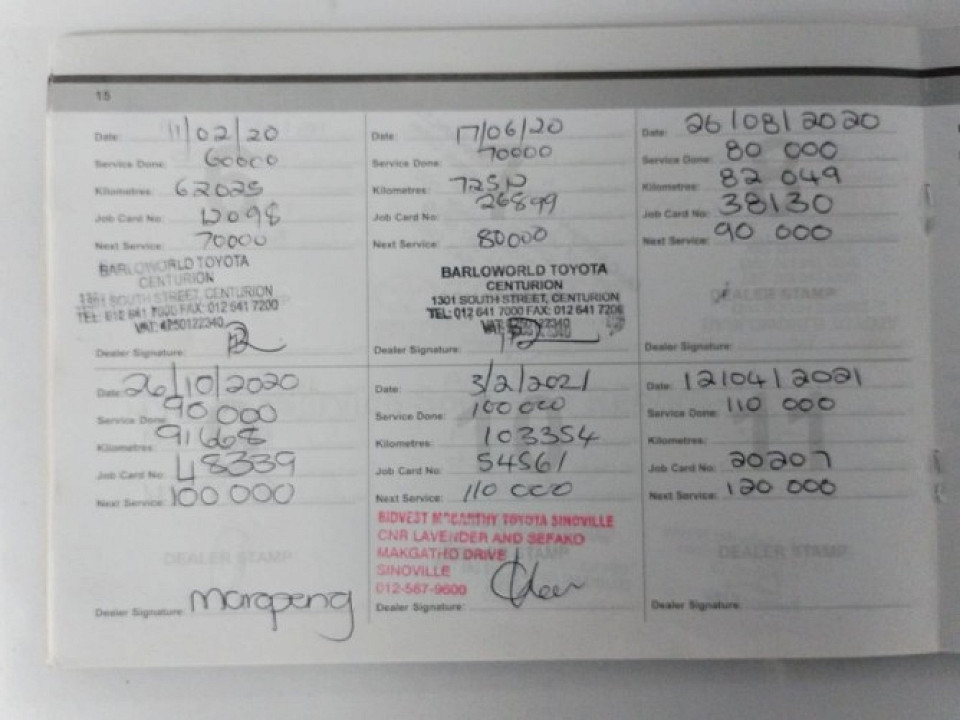 15
Date: 11/02/20
Service Done: 60000
Kilometres: 62025
Job Card No: 12098
Next Service: 70000
BARLOWORLD TOYOTA
CENTURION
1301 SOUTH STREET, CENTURION
TEL: 012 641 7000 FAX: 012 641 7200
VAT: 4250122340
Dealer Signature:
Date: 17/06/20
Service Done: 70000
Kilometres:
Job Card No: 26899
Next Service: 80000
BARLOWORLD TOYOTA
CENTURION
1301 SOUTH STREET, CENTURION
TEL: 012 641 7000 FAX: 012 641 7200
VAT:
Dealer Signature:
Date: 26/08/2020
Service Done: 80 000
Kilometres: 82 049
Job Card No: 38130
Next Service: 90 000
DEALER STAMP
Dealer Signature:
Date: 26/10/2020
Service Done: 90 000
Kilometres: 91668
Job Card No: 48339
Next Service: 100 000
DEALER STAMP
Dealer Signature: Marapeng
Date: 3/2/2021
Service Done: 100 000
Kilometres: 103354
Job Card No: 54561
Next Service: 110 000
BIDVEST MCCARTHY TOYOTA SINOVILLE
CNR LAVENDER AND SEFAKO
MAKGATHO DRIVE
SINOVILLE
012-567-9600
Dealer Signature:
Date: 12/04/2021
Service Done: 110 000
Kilometres:
Job Card No: 20207
Next Service: 120 000
DEALER STAMP
Dealer Signature: